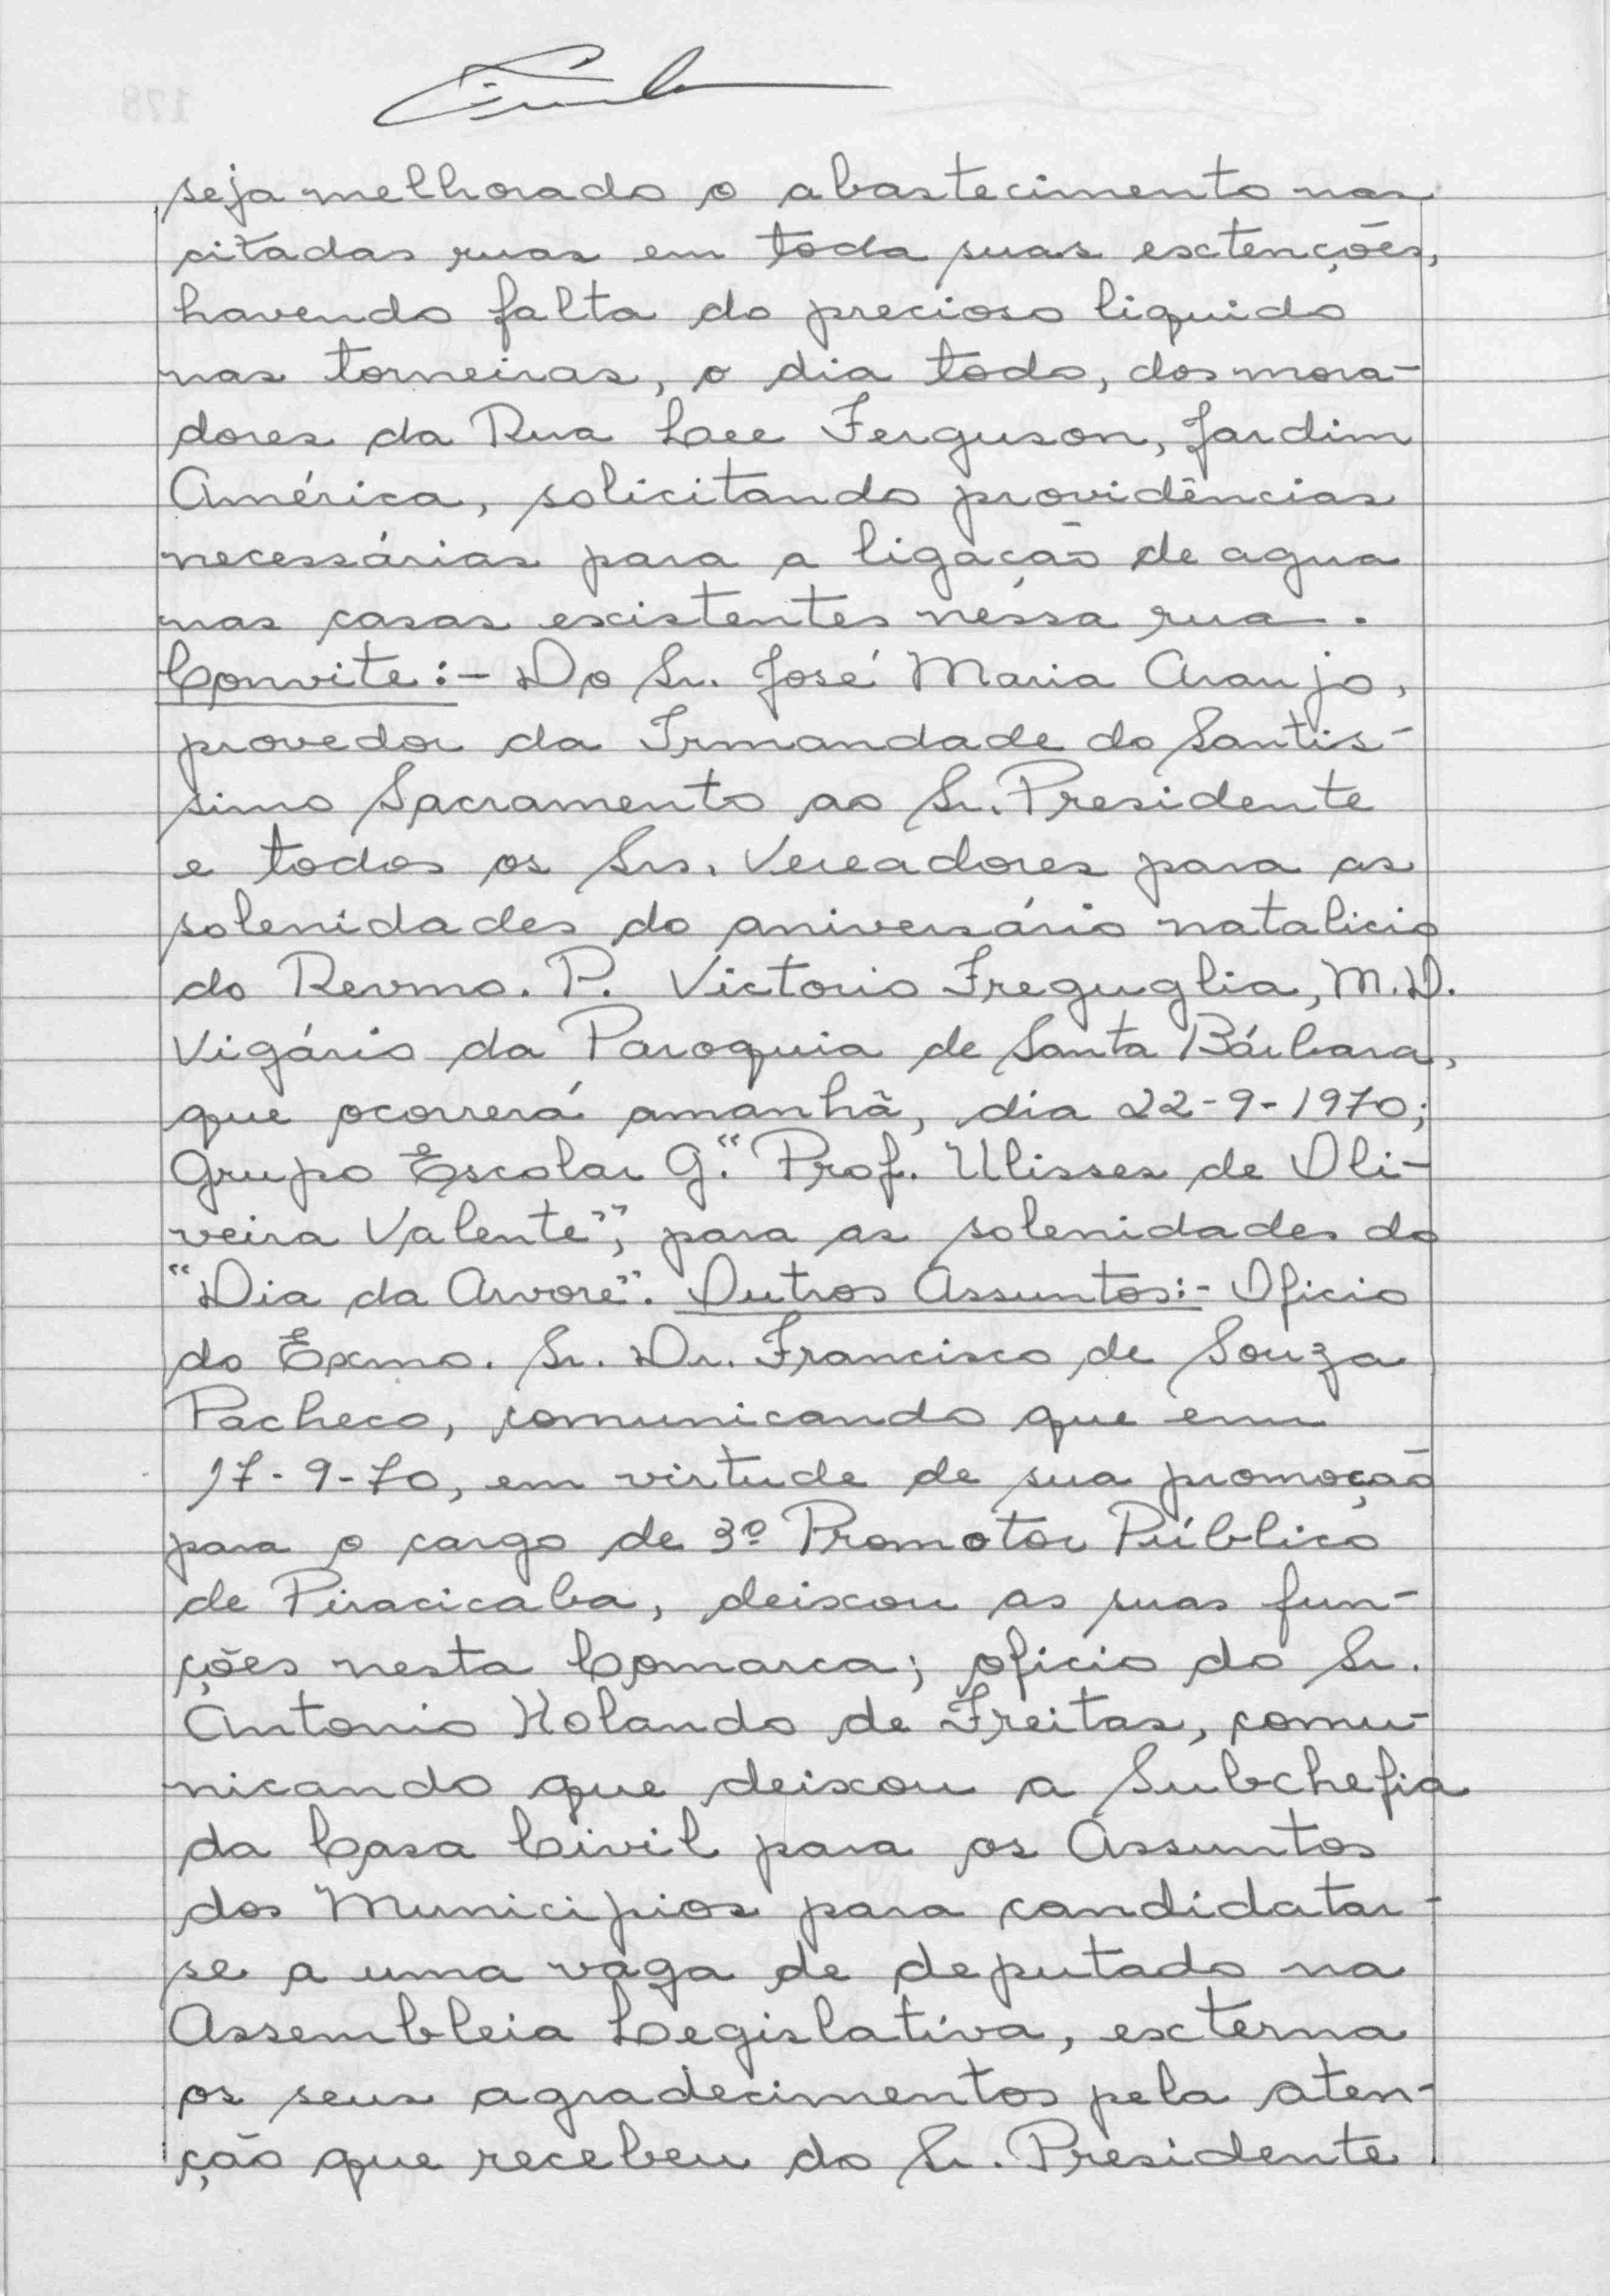 seja melhorado o abastecimento nas
citadas ruas em toda suas extenções,
havendo falta do precioso liquido
nas torneiras, o dia todo, dos mora-
dores da Rua Lee Ferguson, Jardim
América, solicitando providências
necessárias para a ligacão de agua
nas casas existentes néssa rua.
Convite:- Do Sr. José Maria Araujo,
provedor da Irmandade do Santis-
simo Sacramento ao Sr. Presidente
e todos os Srs. Vereadores para as
solenidades do aniversário natalicio
do Revmo. P. Victorio Freguglia, M.D.
Vigário da Paroquia de Santa Bárbara,
que ocorrerá amanhã, dia 22-9-1970;
Grupo Escolar G. "Prof. Ulisses de Oli-
veira Valente", para as solenidades do
"Dia da Arvore". Outros Assuntos:- Oficio
do Exmo. Sr. Dr. Francisco de Souza
Pacheco, comunicando que em
17-9-70, em virtude de sua promoção
para o cargo de 3º Promotor Público
de Piracicaba, deixou as suas fun-
ções nesta Comarca; oficio do Sr.
Antonio Holando de Freitas, comu-
nicando que deixou a Subchefia
da Casa Civil para os Assuntos
dos Municipios para candidatar-
se a uma vaga de deputado na
Assembleia Legislativa, externa
os seus agradecimentos pela aten-
ção que recebeu do Sr. Presidente